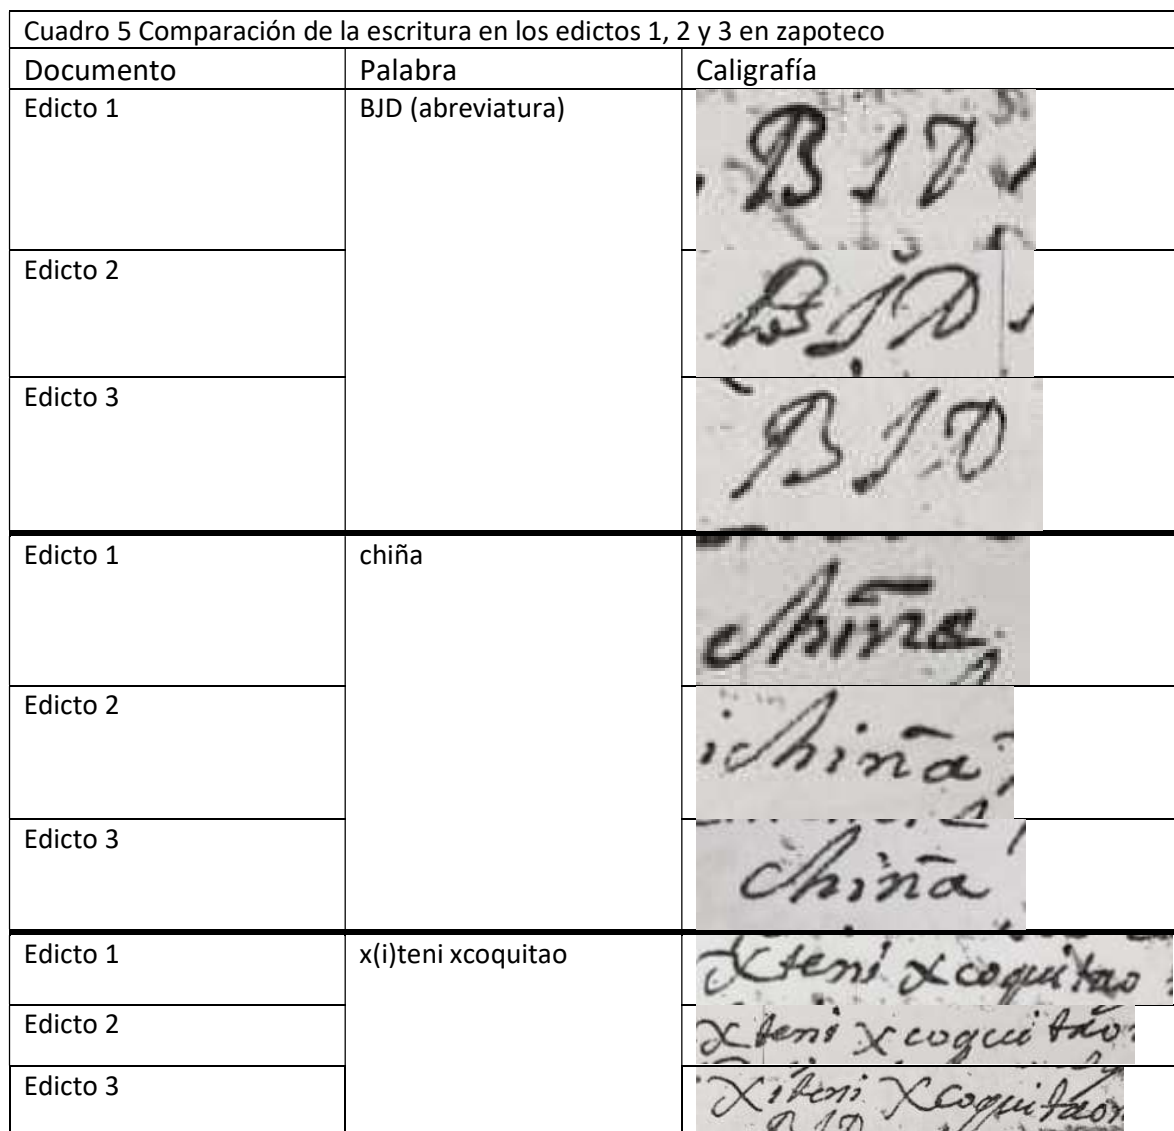 Cuadro 5 Comparación de la escritura en los edictos 1, 2 y 3 en zapoteco
Documento Palabra Caligrafía
Edicto 1 BJD (abreviatura) B J D
Edicto 2 B J D
Edicto 3 B J D
Edicto 1 chiña chiña
Edicto 2 chiña
Edicto 3 chiña
Edicto 1 x(i)teni xcoquitao xteni xcoquitao
Edicto 2 xteni xcoquitao
Edicto 3 xiteni xcoquitao